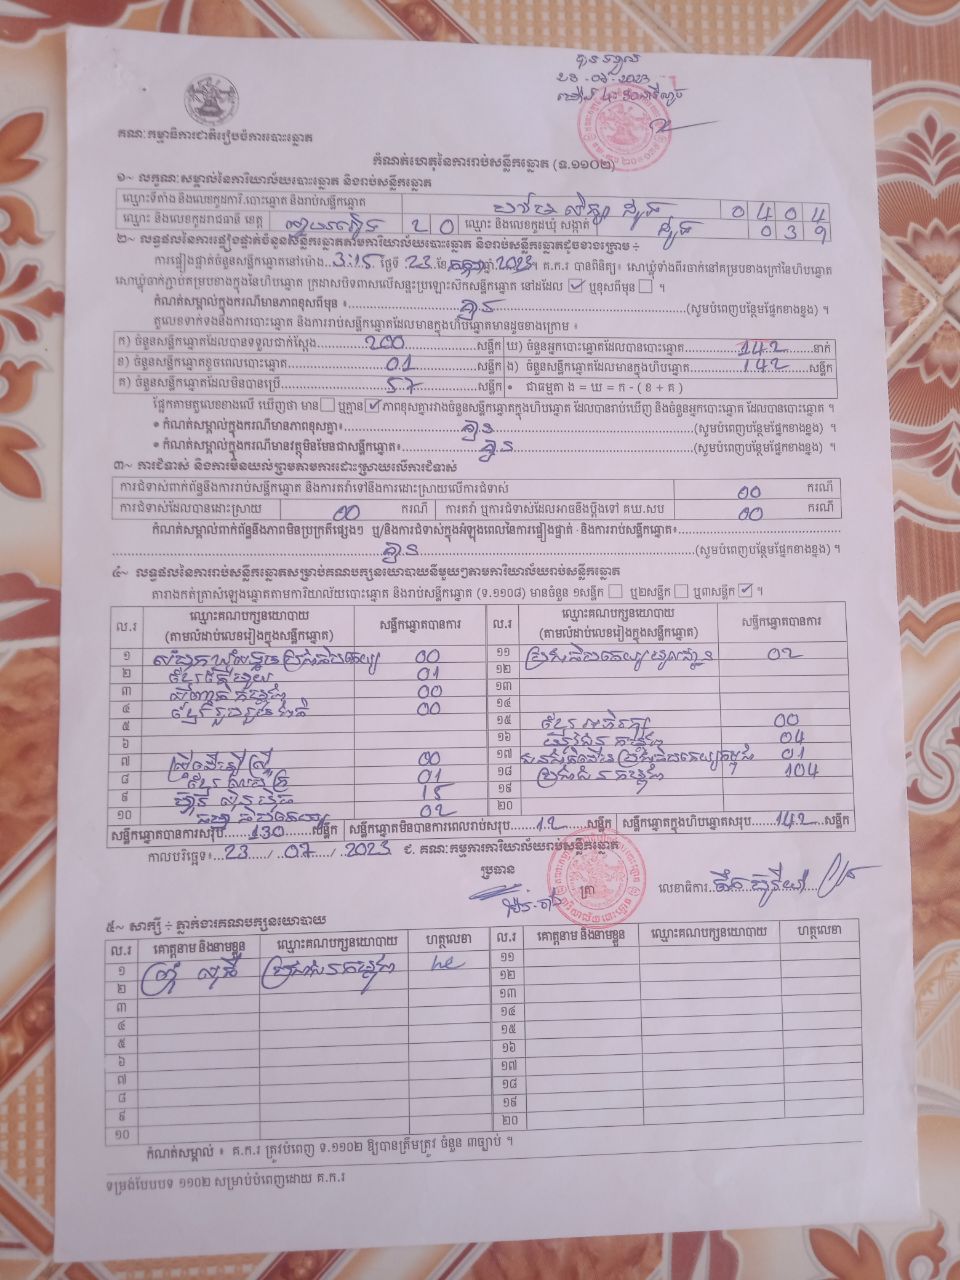 បានទទួល
២៣-០៦-2023
គណៈកម្មាធិការជាតិរៀបចំការបោះឆ្នោត
កំណត់ហេតុនៃការរាប់សន្លឹកឆ្នោត (ទ.១១០២)
១~ លក្ខណៈសម្គាល់នៃការិយាល័យបោះឆ្នោត និងរាប់សន្លឹកឆ្នោត
ឈ្មោះទីតាំង និងលេខកូដការិ.បោះឆ្នោត និងរាប់សន្លឹកឆ្នោត 0404
ឈ្មោះ និងលេខកូដរាជធានី ខេត្ត 20 ឈ្មោះ និងលេខកូដឃុំ សង្កាត់ 039
២~ លទ្ធផលនៃការផ្ទៀងផ្ទាត់ចំនួនសន្លឹកឆ្នោតតាមការិយាល័យបោះឆ្នោត និងរាប់សន្លឹកឆ្នោតដូចខាងក្រោម ÷
ការផ្ទៀងផ្ទាត់ចំនួនសន្លឹកឆ្នោតនៅម៉ោង 3:15 ថ្ងៃទី 23 ខែ កក្កដា ឆ្នាំ 2023 ។ គ.ក.រ បានពិនិត្យ៖ សោឃ្មុំទាំងពីរចាក់នៅគម្របខាងក្រៅនៃហិបឆ្នោត
សោឃ្មុំចាក់ភ្ជាប់គម្របខាងក្នុងនៃហិបឆ្នោត ក្រដាសបិទពាសលើសន្ទះប្រឡោះសិកសន្លឹកឆ្នោត នៅដដែល ☑ ឬខុសពីមុន ☐ ។
កំណត់សម្គាល់ក្នុងករណីមានភាពខុសពីមុន ៖ គ្មាន (សូមបំពេញបន្ថែមផ្នែកខាងខ្នង) ។
តួលេខទាក់ទងនឹងការបោះឆ្នោត និងការរាប់សន្លឹកឆ្នោតដែលមានក្នុងហិបឆ្នោតមានដូចខាងក្រោម ៖
ក) ចំនួនសន្លឹកឆ្នោតដែលបានទទួលជាក់ស្តែង 200 សន្លឹក ឃ) ចំនួនអ្នកបោះឆ្នោតដែលបានបោះឆ្នោត 142 នាក់
ខ) ចំនួនសន្លឹកឆ្នោតខូចពេលបោះឆ្នោត 01 សន្លឹក ង) ចំនួនសន្លឹកឆ្នោតដែលមានក្នុងហិបឆ្នោត 142 សន្លឹក
គ) ចំនួនសន្លឹកឆ្នោតដែលមិនបានប្រើ 57 សន្លឹក • ជាធម្មតា ង = ឃ = ក - ( ខ + គ )
ផ្អែកតាមតួលេខខាងលើ ឃើញថា មាន ☐ ឬគ្មាន ☑ ភាពខុសគ្នារវាងចំនួនសន្លឹកឆ្នោតក្នុងហិបឆ្នោត ដែលបានរាប់ឃើញ និងចំនួនអ្នកបោះឆ្នោត ដែលបានបោះឆ្នោត ។
• កំណត់សម្គាល់ក្នុងករណីមានភាពខុសគ្នា៖ គ្មាន (សូមបំពេញបន្ថែមផ្នែកខាងខ្នង) ។
• កំណត់សម្គាល់ក្នុងករណីមានវត្ថុមិនមែនជាសន្លឹកឆ្នោត៖ គ្មាន (សូមបំពេញបន្ថែមផ្នែកខាងខ្នង) ។
៣~ ការជំទាស់ និងការមិនយល់ព្រមតាមការដោះស្រាយលើការជំទាស់
ការជំទាស់ពាក់ព័ន្ធនឹងការរាប់សន្លឹកឆ្នោត និងការតវ៉ាទៅនឹងការដោះស្រាយលើការជំទាស់ 00 ករណី
ការជំទាស់ដែលបានដោះស្រាយ 00 ករណី ការតវ៉ា ឬការជំទាស់ដែលអាចនឹងប្តឹងទៅ គឃ.សប 00 ករណី
កំណត់សម្គាល់ពាក់ព័ន្ធនឹងភាពមិនប្រក្រតីផ្សេងៗ ឬ/និងការជំទាស់ក្នុងអំឡុងពេលនៃការផ្ទៀងផ្ទាត់ និងការរាប់សន្លឹកឆ្នោត៖
គ្មាន (សូមបំពេញបន្ថែមផ្នែកខាងខ្នង) ។
៤~ លទ្ធផលនៃការរាប់សន្លឹកឆ្នោតសម្រាប់គណបក្សនយោបាយនីមួយៗតាមការិយាល័យរាប់សន្លឹកឆ្នោត
តារាងកត់ត្រាសំឡេងឆ្នោតតាមការិយាល័យបោះឆ្នោត និងរាប់សន្លឹកឆ្នោត (ទ.១១០៨) មានចំនួន ១សន្លឹក ☐ ឬ២សន្លឹក ☐ ឬ៣សន្លឹក ☑ ។
ល.រ ឈ្មោះគណបក្សនយោបាយ (តាមលំដាប់លេខរៀងក្នុងសន្លឹកឆ្នោត) សន្លឹកឆ្នោតបានការ ល.រ ឈ្មោះគណបក្សនយោបាយ (តាមលំដាប់លេខរៀងក្នុងសន្លឹកឆ្នោត) សន្លឹកឆ្នោតបានការ
១ សំបុកឃ្មុំសង្គមប្រជាធិបតេយ្យ 00 ១១ ប្រជាធិបតេយ្យមូលដ្ឋាន 02
២ 01 ១២
៣ 00 ១៣
៤ ខ្មែររួបរួមជាតិ 00 ១៤
៥ ១៥ ខ្មែរអភិរក្ស 00
៦ ១៦ 04
៧ 00 ១៧ 01
៨ 01 ១៨ ប្រជាជនកម្ពុជា 104
៩ ហ៊្វុនស៊ិនប៉ិច 15 ១៩
១០ 02 ២០
សន្លឹកឆ្នោតបានការសរុប 130 សន្លឹក សន្លឹកឆ្នោតមិនបានការពេលរាប់សរុប 12 សន្លឹក សន្លឹកឆ្នោតក្នុងហិបឆ្នោតសរុប 142 សន្លឹក
កាលបរិច្ឆេទ៖ 23 / 07 / 2023 ជ. គណៈកម្មការការិយាល័យរាប់សន្លឹកឆ្នោត
ប្រធាន ត្រា លេខាធិការ
៥~ សាក្សី ÷ ភ្នាក់ងារគណបក្សនយោបាយ
ល.រ គោត្តនាម និងនាមខ្លួន ឈ្មោះគណបក្សនយោបាយ ហត្ថលេខា ល.រ គោត្តនាម និងនាមខ្លួន ឈ្មោះគណបក្សនយោបាយ ហត្ថលេខា
១ ប្រជាជនកម្ពុជា ១១
២ ១២
៣ ១៣
៤ ១៤
៥ ១៥
៦ ១៦
៧ ១៧
៨ ១៨
៩ ១៩
១០ ២០
កំណត់សម្គាល់ ៖ គ.ក.រ ត្រូវបំពេញ ទ.១១០២ ឱ្យបានត្រឹមត្រូវ ចំនួន ៣ច្បាប់ ។
ទម្រង់បែបបទ ១១០២ សម្រាប់បំពេញដោយ គ.ក.រ